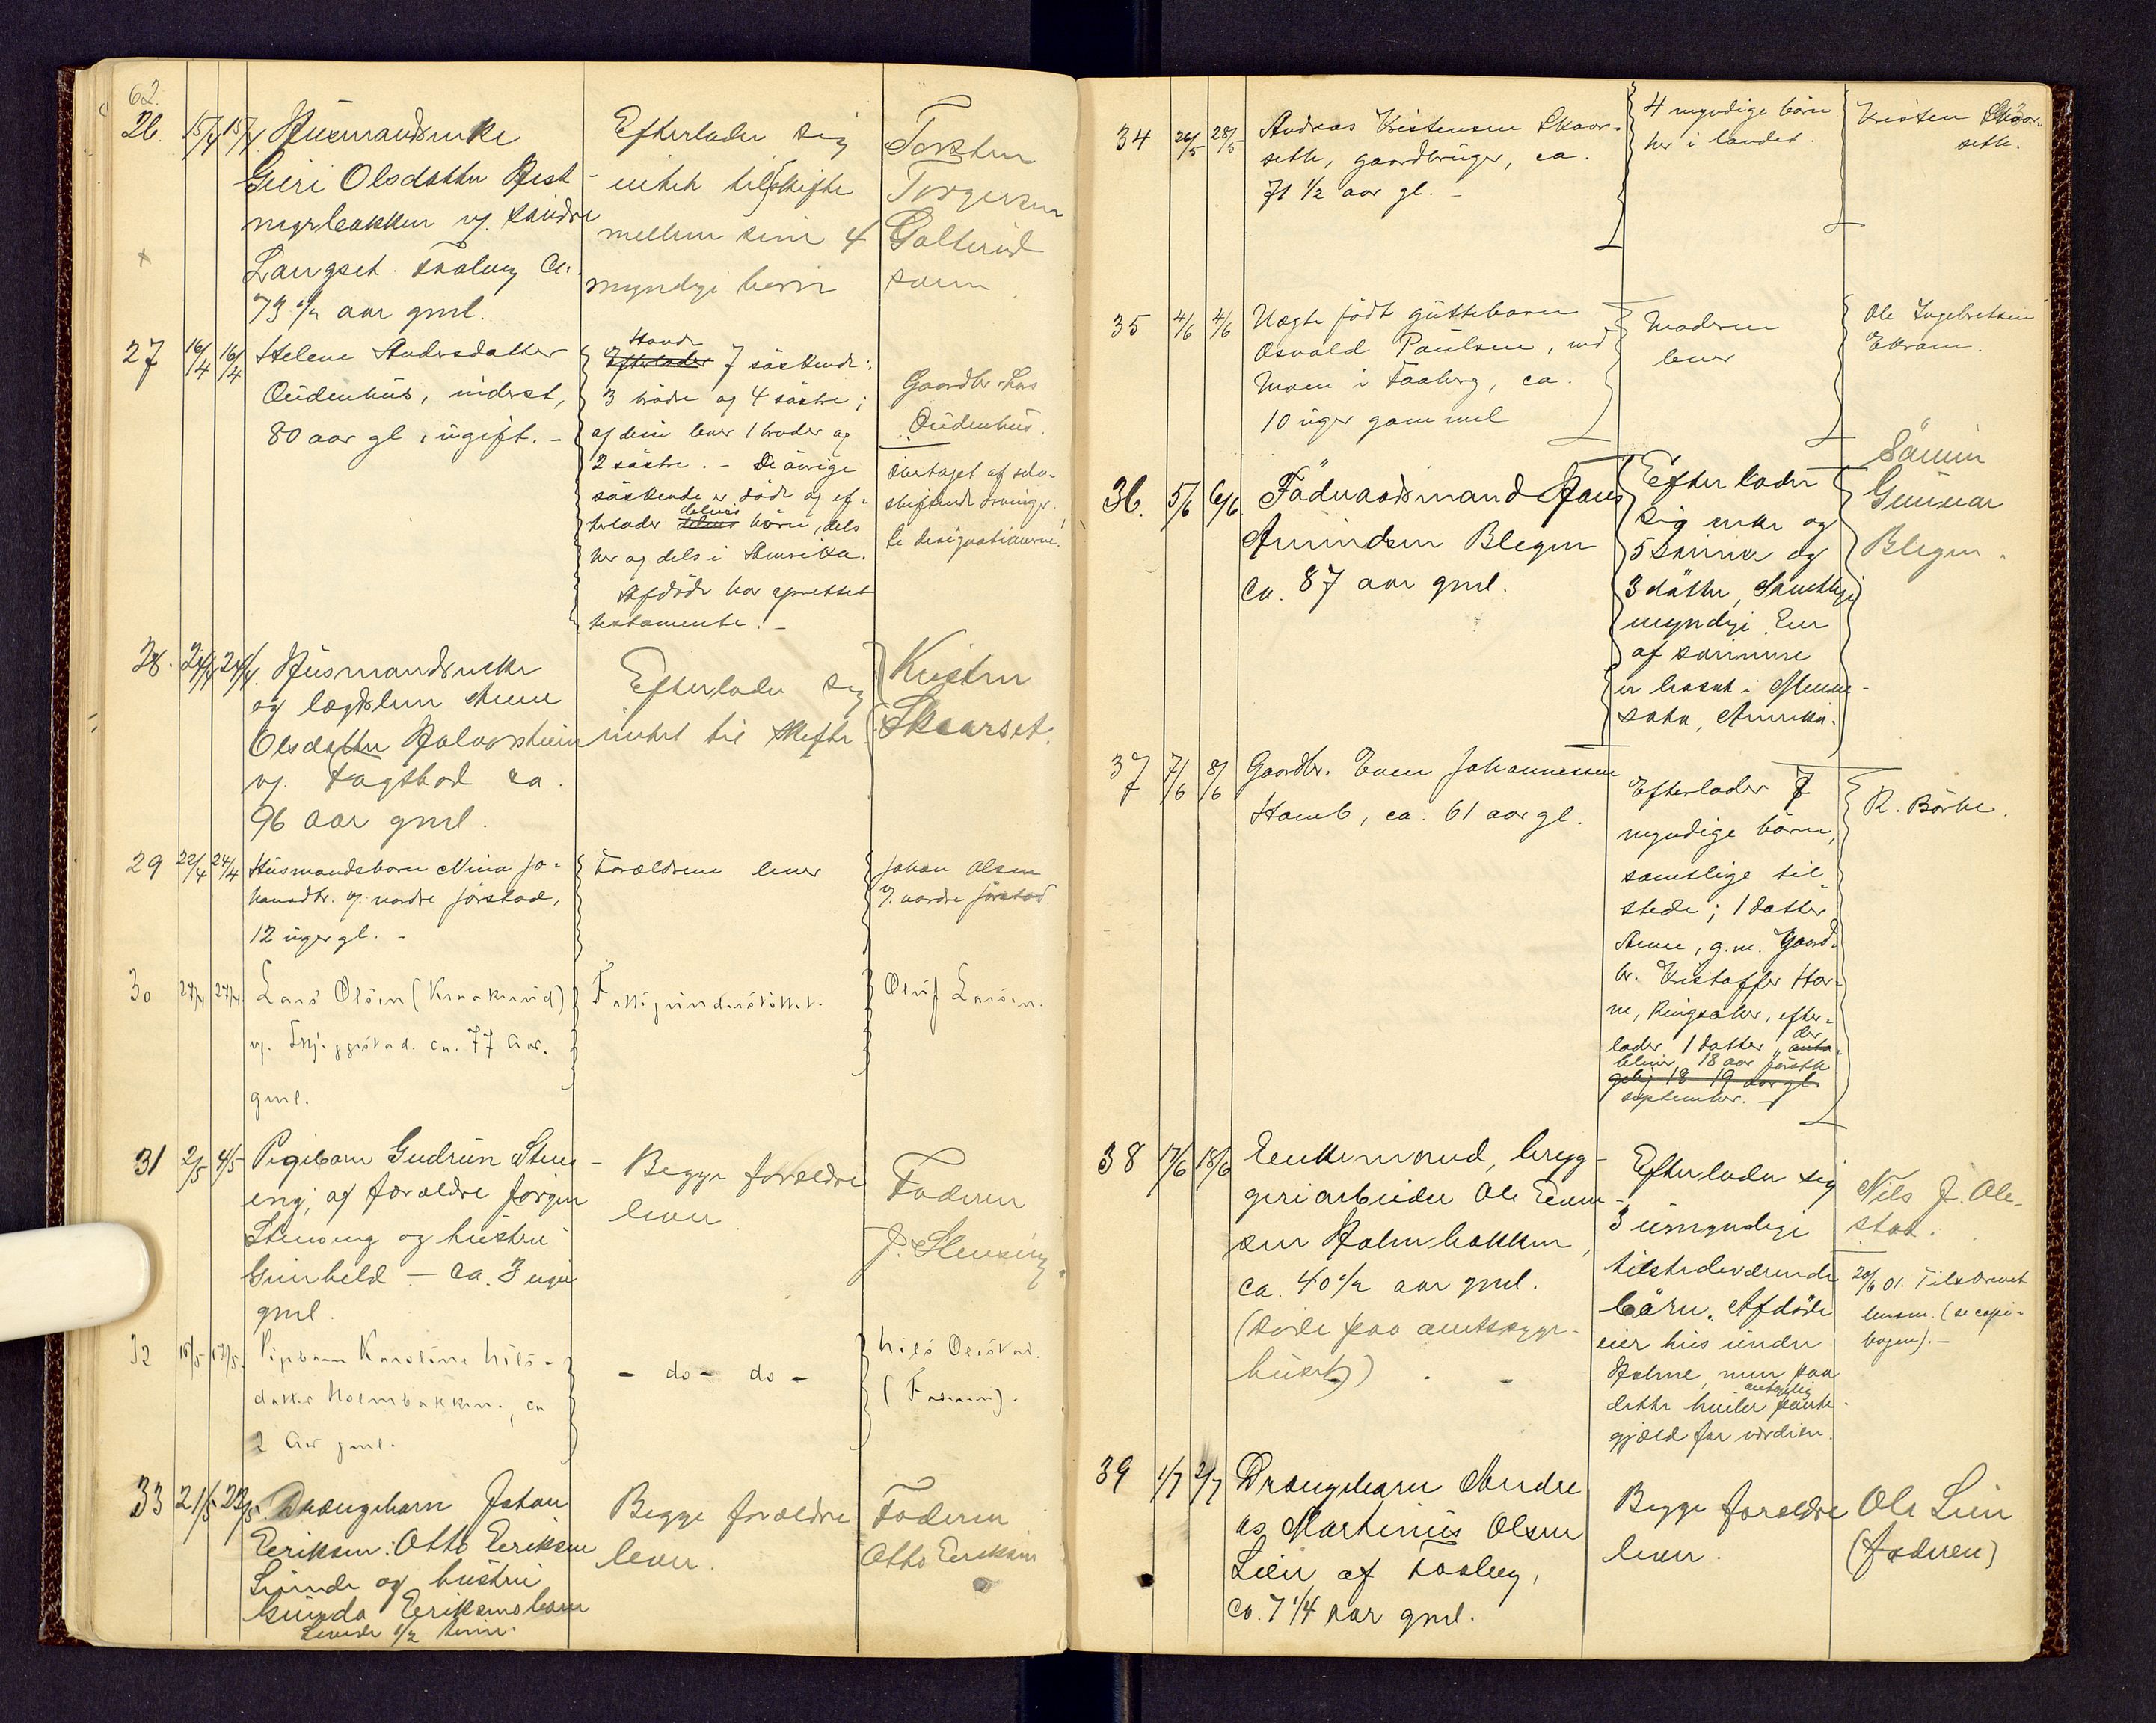 62.
26. 15/4 15/4 Husmandsenke
Giri Olsdatter Hest-
myrbakken v/. søndre
Langset Faaberg Ca.
73 1/2 aar gml.
Efterlader sig
intet til skifte
mellem sine 4
myndige børn
Torsten
Torgersen
Galterud
søn
27 16/4 16/4 Helene Andersdatter
Oudenhus, inderst,
80 aar gl., ugift. –
Havde
Efterlader 7 söskende:
3 brödre og 4 söstre;
af disse lever 1 broder og
2 söstre. – De övrige
söskende er döde og ef-
terlader delvis börn, dels
her og dels i Amerika.
Afdöde har oprettet
testamente. –
Gaardbr. Lars
Oudenhus.
overtaget af selv-
skiftende arvinger.
Se designationerne!
28. 24/4 24/4. Husmandsenke
og lægdslem Anne
Olsdatter
v/. Fagstad ca.
96 aar gml.
Efterlader sig
intet til skifte
Kristen
Skaarset.
29 22/4 24/4 Husmandsbarn Nina Jo-
hansdtr. v/. nordre Jörstad,
12 uger gl. –
Forældrene lever
Johan Olsen
v/. nordre Jörstad
30 24/4 24/4 Lars Olsen (Kraakerud)
v/. Skjeggestad. ca. 77 Aar.
gml.
Fattigunderstöttet.
Oluf Larsen.
31 2/5 4/5 Pigebarn Gudrun Sten-
eng; af forældre Jørgen
Steneng og hustru
Gunhild – ca. 3 uger
gml.
Begge forældre
lever
Faderen
J. Steneng.
32 15/5 17/5. Pigebarn Karoline Nils-
datter Holmbakken, ca
2 Aar gml.
– do – do –
Nils Olestad.
(Faderen).
33 21/5 22/5. Drengebarn Johan
Eriksen: Otto Eriksen
Lunde og hustru
Gunda Eriksens barn
Levede 1/2 time.
Begge forældre
lever.
Faderen
Otto Eriksen
34 26/5 28/5 Andreas Kristensen Skaar-
seth, gaardbruger, ca.
71 1/2 aar gl. –
4 myndige börn
her i landet.
Kristen Skaar-
seth.
35 4/6 4/6 Uægte födt guttebarn
Osvald Paulsen, ved
Moen i Faaberg, ca.
10 uger gammel
Moderen
lever
Ole Ingebretsen
Ekram.
36. 5/6 6/6 Föderaadsmand Hans
Amundsen Blegen
Ca. 87 aar gml.
Efterlader
sig enke og
5 sønner og
3 døttre, samtlige
myndige. En
af sønnene
er bosat i Minne-
sota, Amerika.
Sönnen
Gunnar
Blegen.
37 7/6 8/6 Gaardbr. Even Johannessen
Hameb, ca. 61 aar gl.
Efterlader 7
myndige börn,
samtlige til-
stede; 1 datter
Anne, g.m. Gaard-
br. Kristoffer Hor-
ne, Ringsaker, efter-
lader 1 datter, der
bliver 18 aar förstk.
18 – 19 aar gl.
september. –
R. Börke.
38 17/6 18/6 Enkemand, bryg-
geriarbeider Ole Even-
sen Holmbakken,
ca. 40 1/2 aar gml.
(døde paa amtssyge-
huset)
Efterlader sig
3 umyndige
tilstedeværende
börn. Afdöde
eier hus under
Holme, men paa
dette hviler antagelig pante-
gjæld for værdien.
Nils J. Ole-
stad.
20/6 01. Tilskrevet
lensm. (se copi-
bogen). –
39 1/7 2/7 Drengebarn Andre
as Martinius Olsen
Lien af Faaberg,
Ca. 7 1/4 aar gml.
Begge forældre
lever.
Ole Lien
(faderen)